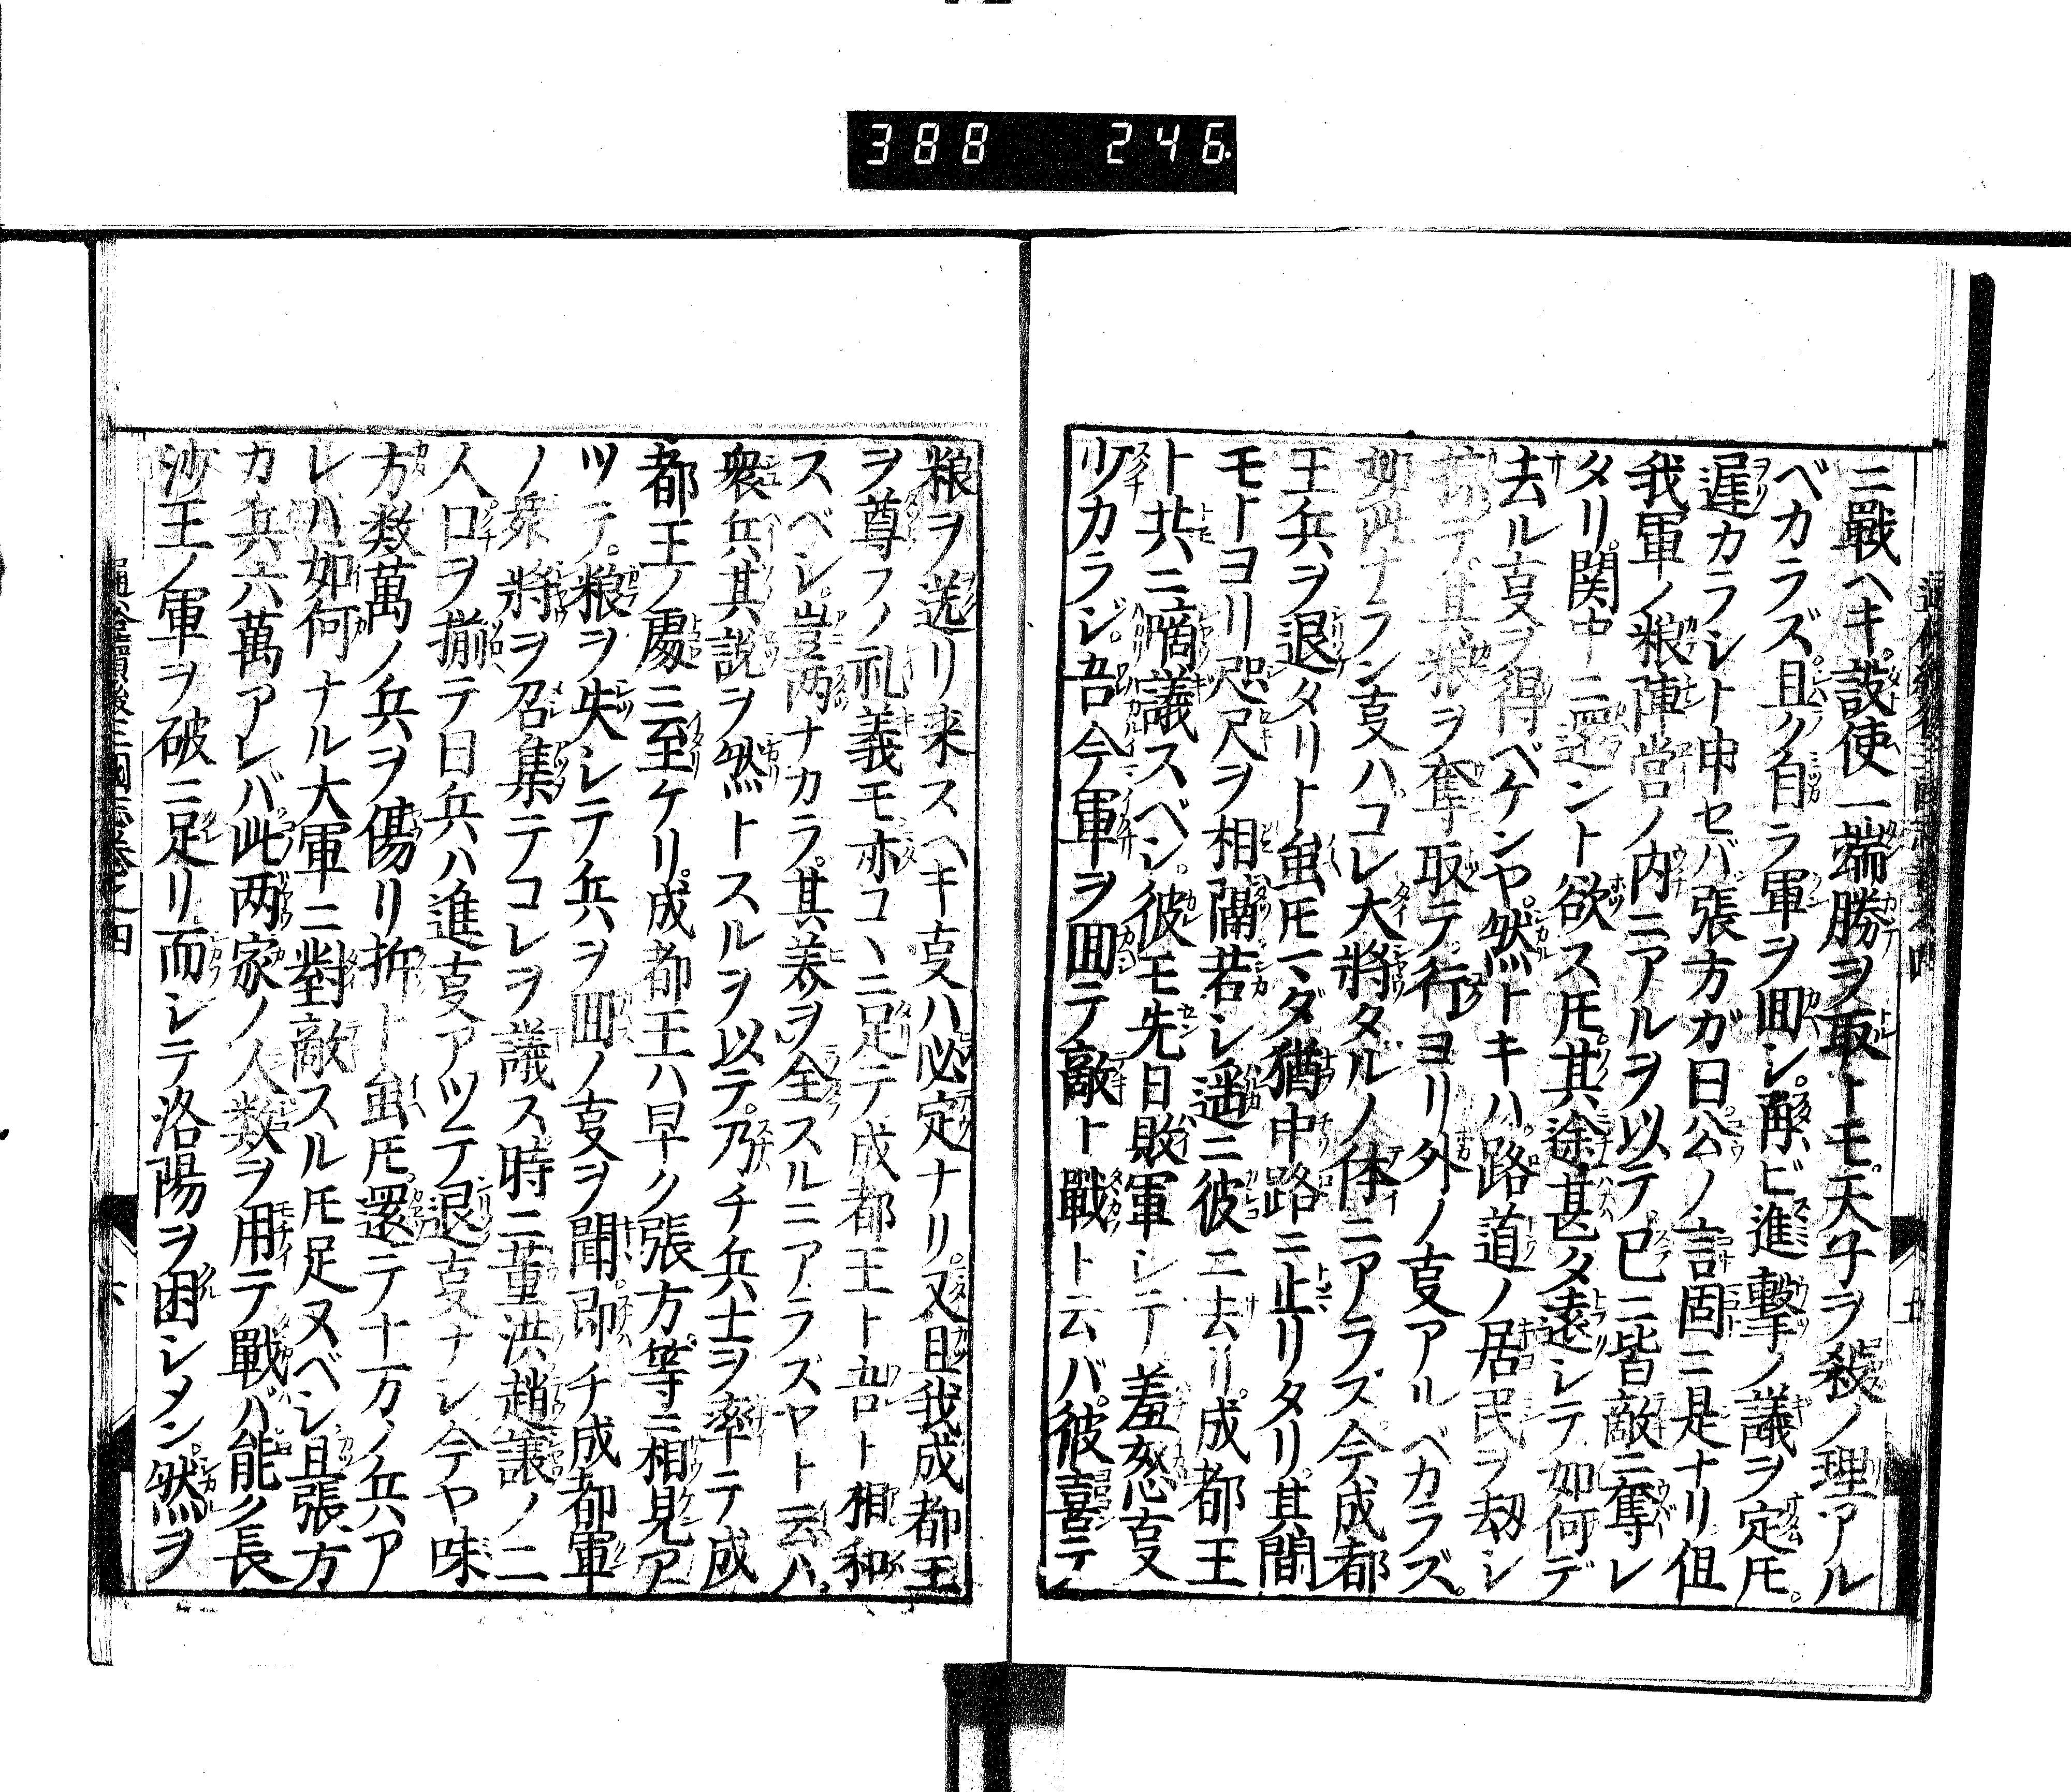 388 246
ニ戰ヘキ。設使一端勝ヲ取トモ。天子ヲ殺ノ理アル
ベカラズ且ク自ラ軍ヲ囬シ。再ビ進撃ノ議ヲ定㐧。
遅カラシト申セバ張方ガ曰。公ノ言固ニ是ナリ。但
我軍ノ粮陣営ノ内ニアルヲ以テ。已ニ皆敵ニ奪レ
タリ。関中ニ還ント欲ス𪜈。其途甚タ遠シテ如何デ
去ル叓ヲ得ベケンヤ。然トキハ路道ノ居民ヲ刼シ
テ。且粮ヲ奪取テ行ヨリ外ノ叓アルベカラズ。
如此ナラン叓ハコレ大將タルノ体ニアラズ今成都
王兵ヲ退タリト虽𪜈マダ猶中路ニ止リタリ。其間
モトヨリ咫尺ヲ相隔若シ遥ニ彼エ去リ。成都王
ト共ニ啇議スベシ。彼モ先日敗軍シテ羞怒叓
少カラジ。吾今軍ヲ囬テ敵ト戰ト云バ。彼喜テ
粮ヲ送リ来スヘキ叓ハ必定ナリ。又且我成都王
ヲ尊フノ礼義モ亦コヽニ足テ成都王ト吾ト相和
スベシ。豈两ナカラ。其美ヲ全スルニアラズヤト云ハ。
衆兵其説ヲ然トスルヲ以テ。乃チ兵士ヲ率テ成
都王ノ處ニ至ケリ。成都王ハ早ク張方等ニ相見ア
ツテ。粮ヲ失レテ兵ヲ囬ノ叓ヲ聞。即チ成都軍
ノ衆將ヲ召集テコレヲ議ス時ニ董洪趙譲ノ二
人口ヲ揃テ曰兵ハ進叓アツテ退叓ナシ今ヤ味
方数萬ノ兵ヲ傷リ折ト虽𪜈。還テ十万ノ兵ア
レハ如何ナル大軍ニ對敵スル𪜈足ヌベシ且張方
カ兵六萬アレバ此两家ノ人数ヲ用テ戰バ能ク長
沙王ノ軍ヲ破ニ足リ而シテ洛陽ヲ困シメン。然ヲ
通俗續後三國志卷之四
六